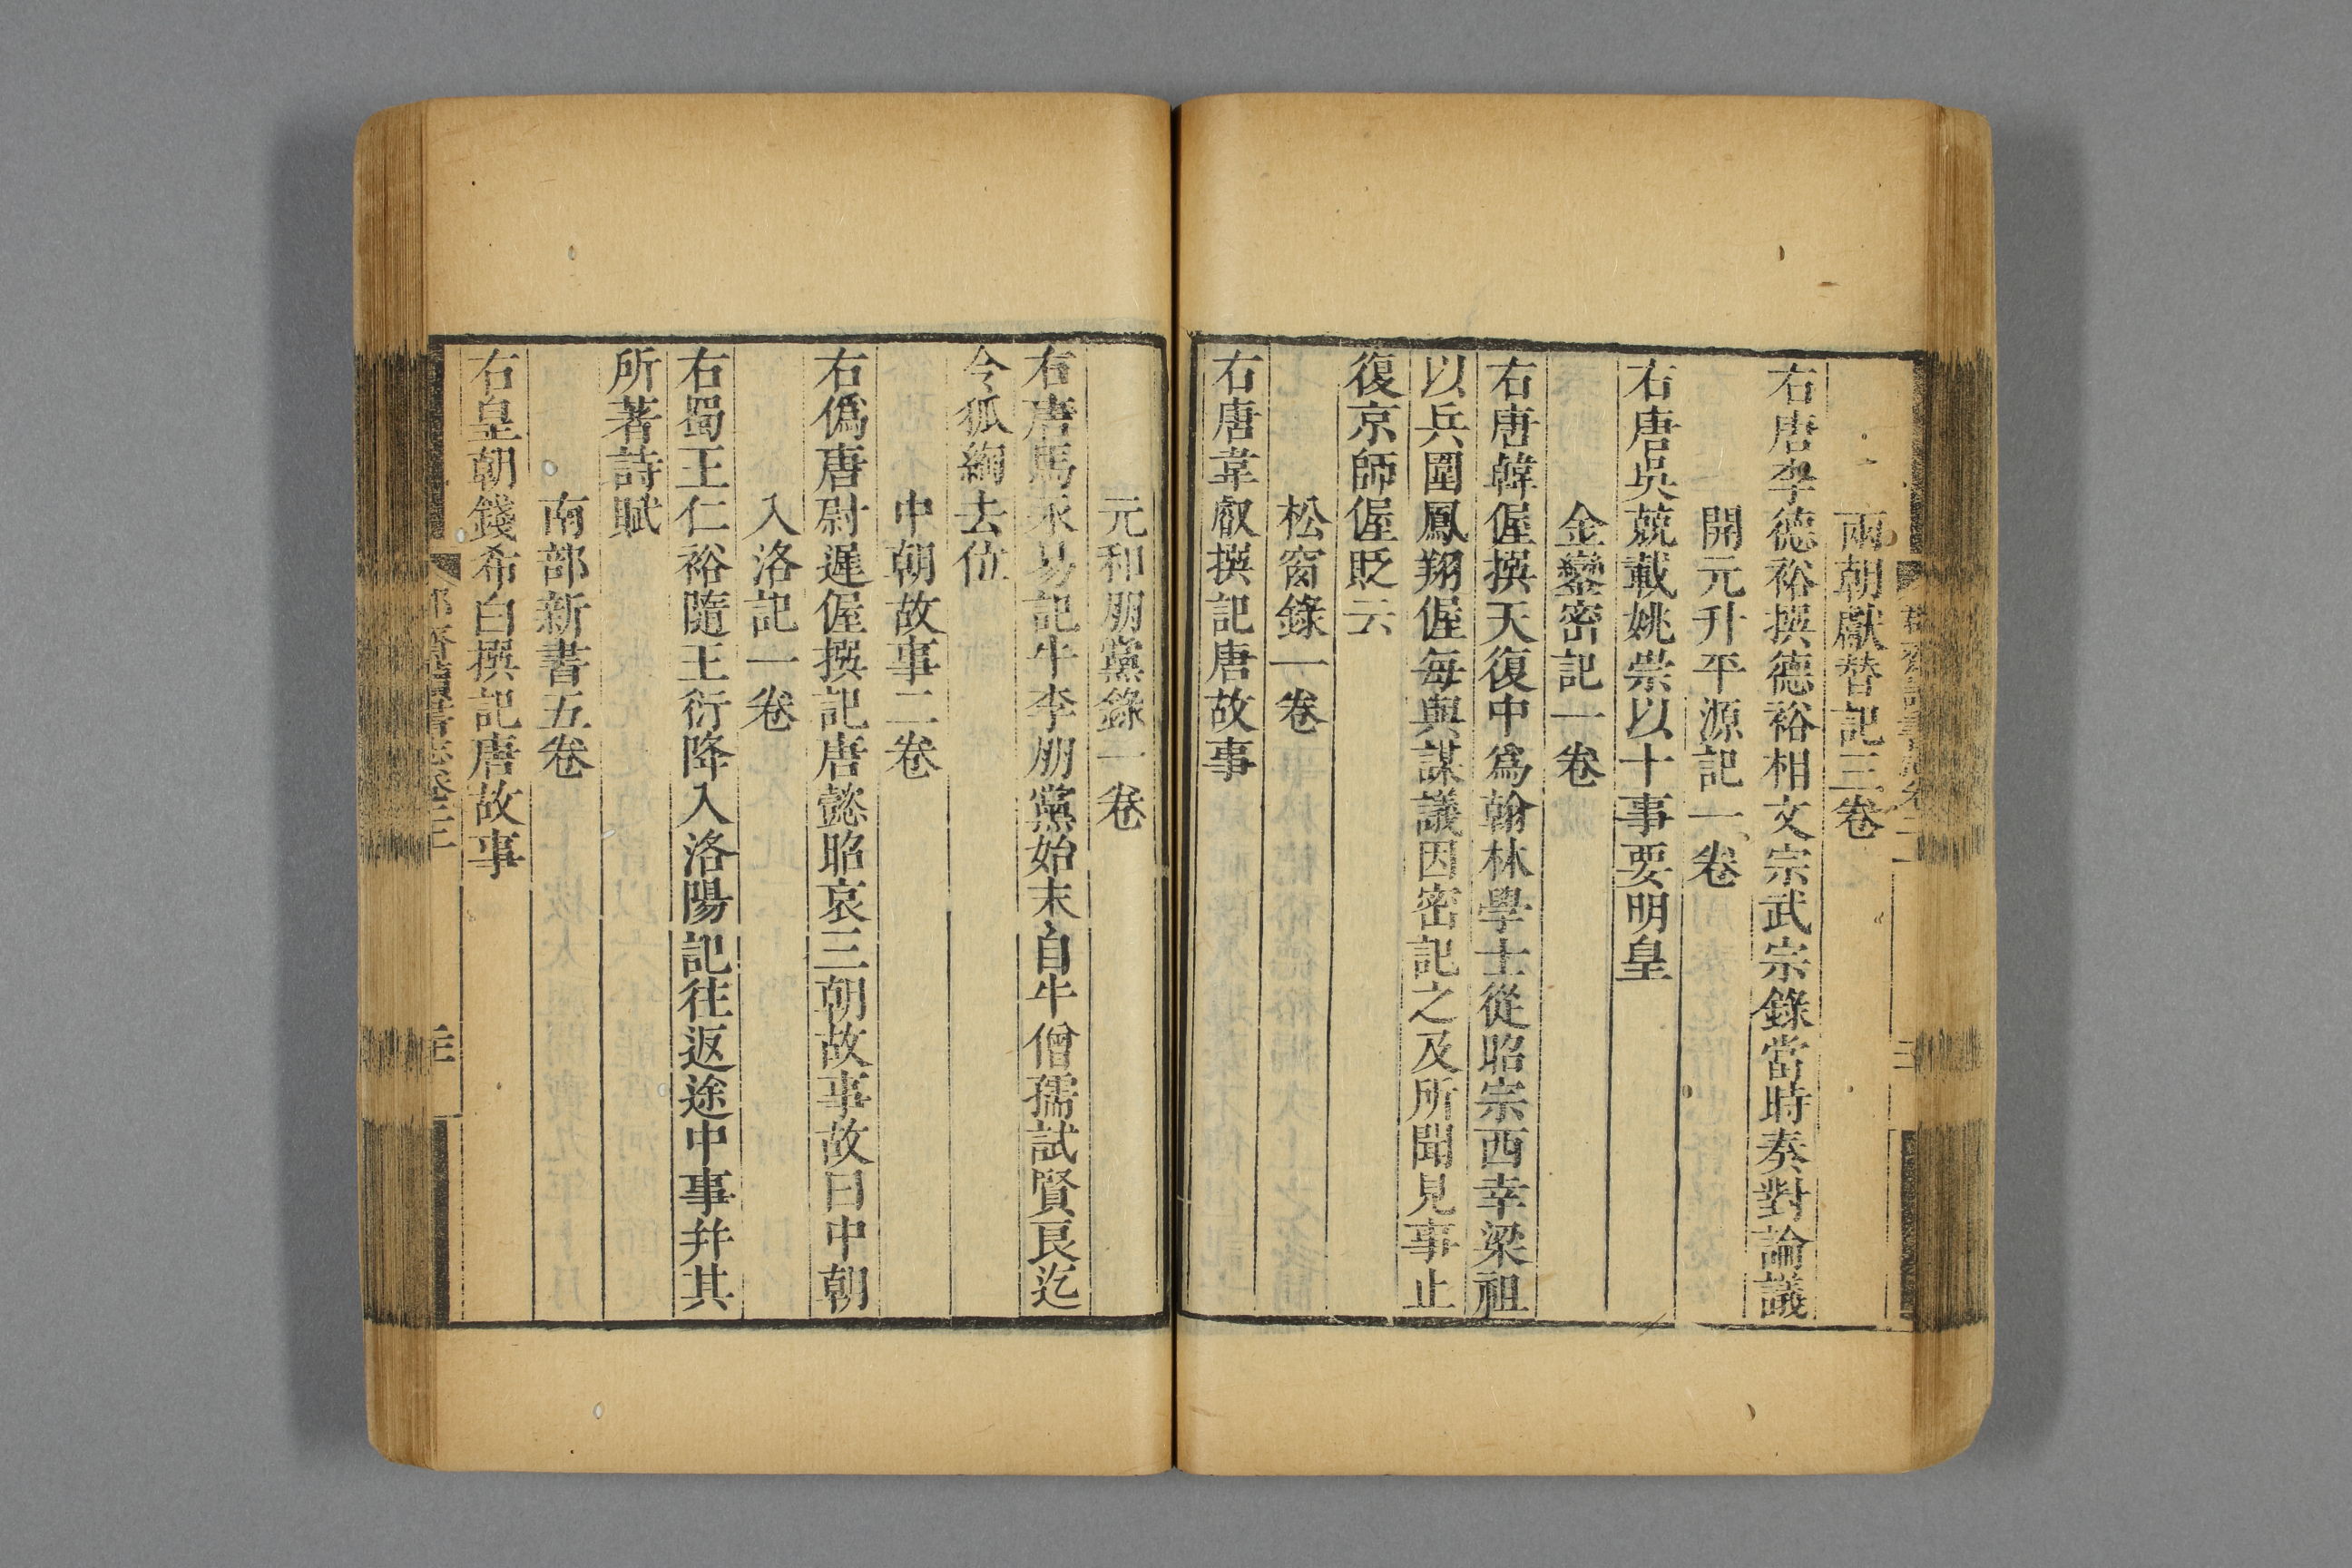 兩朝獻替記三卷
右唐李德裕撰德裕相文宗武宗錄當時奏對論議
開元升平源記一卷
右唐吳兢載姚崇以十事要明皇
金鑾密記一卷
右唐韓偓撰天復中爲翰林學士從昭宗西幸梁祖
以兵圍鳳翔偓每與謀議因密記之及所聞見事止
復京師偓貶云
松窗錄一卷
右唐韋叡撰記唐故事
元和朋黨錄一卷
右唐馬永易記牛李朋黨始末自牛僧孺試賢良迄
令狐綯去位
中朝故事二卷
右僞唐尉遲偓撰記唐懿昭哀三朝故事故曰中朝
入洛記一卷
右蜀王仁裕隨王衍降入洛陽記往返途中事并其
所著詩賦
南部新書五卷
右皇朝錢希白撰記唐故事